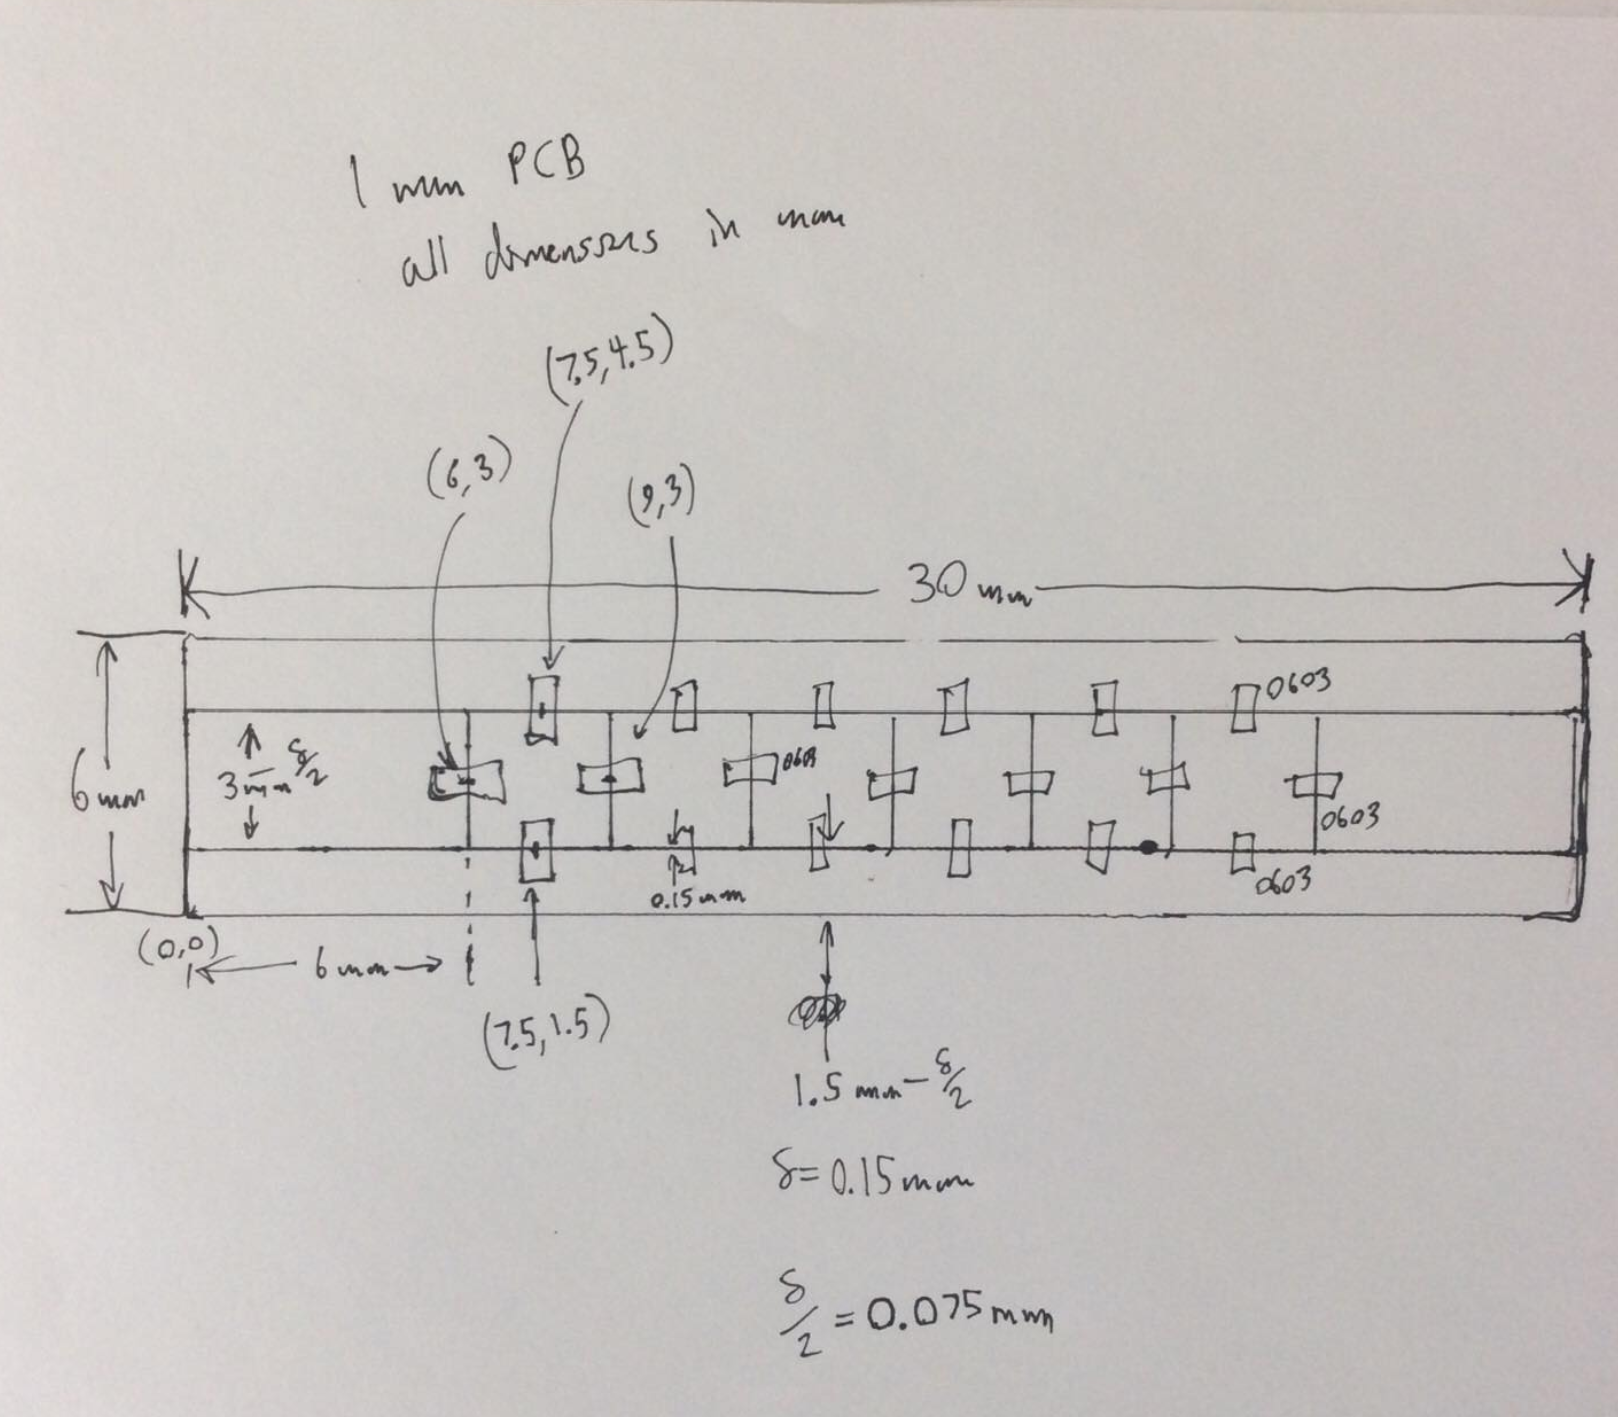 1 mm PCB
all dimensions in mm
(7.5,4.5)
(6,3)
(9,3)
30 mm
0603
6 mm
3mm - δ/2
0603
0603
0.15mm
0603
(0,0)
6 mm
(7.5,1.5)
1.5 mm - δ/2
δ = 0.15mm
δ/2 = 0.075mm